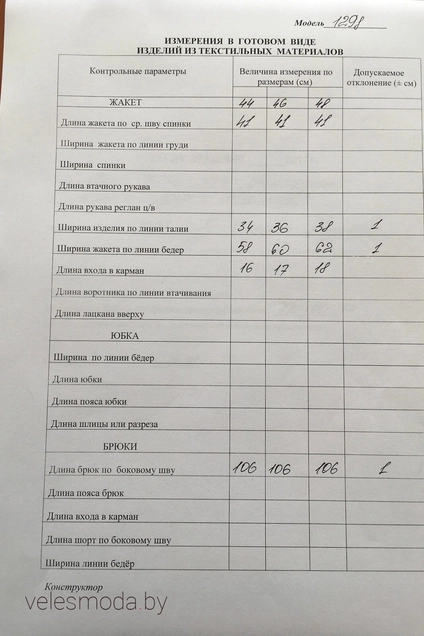 Модель 1298
ИЗМЕРЕНИЯ В ГОТОВОМ ВИДЕ
ИЗДЕЛИЙ ИЗ ТЕКСТИЛЬНЫХ МАТЕРИАЛОВ
Контрольные параметры Величина измерения по размерам (см) Допускаемое отклонение (± см)
ЖАКЕТ 44 46 48
Длина жакета по ср. шву спинки 41 41 41
Ширина жакета по линии груди
Ширина спинки
Длина втачного рукава
Длина рукава реглан ц/в
Ширина изделия по линии талии 34 36 38 1
Ширина жакета по линии бедер 58 60 62 1
Длина входа в карман 16 17 18
Длина воротника по линии втачивания
Длина лацкана вверху
ЮБКА
Ширина по линии бёдер
Длина юбки
Длина пояса юбки
Длина шлицы или разреза
БРЮКИ
Длина брюк по боковому шву 106 106 106 1
Длина пояса брюк
Длина входа в карман
Длина шорт по боковому шву
Ширина линии бедёр
Конструктор
velesmoda.by